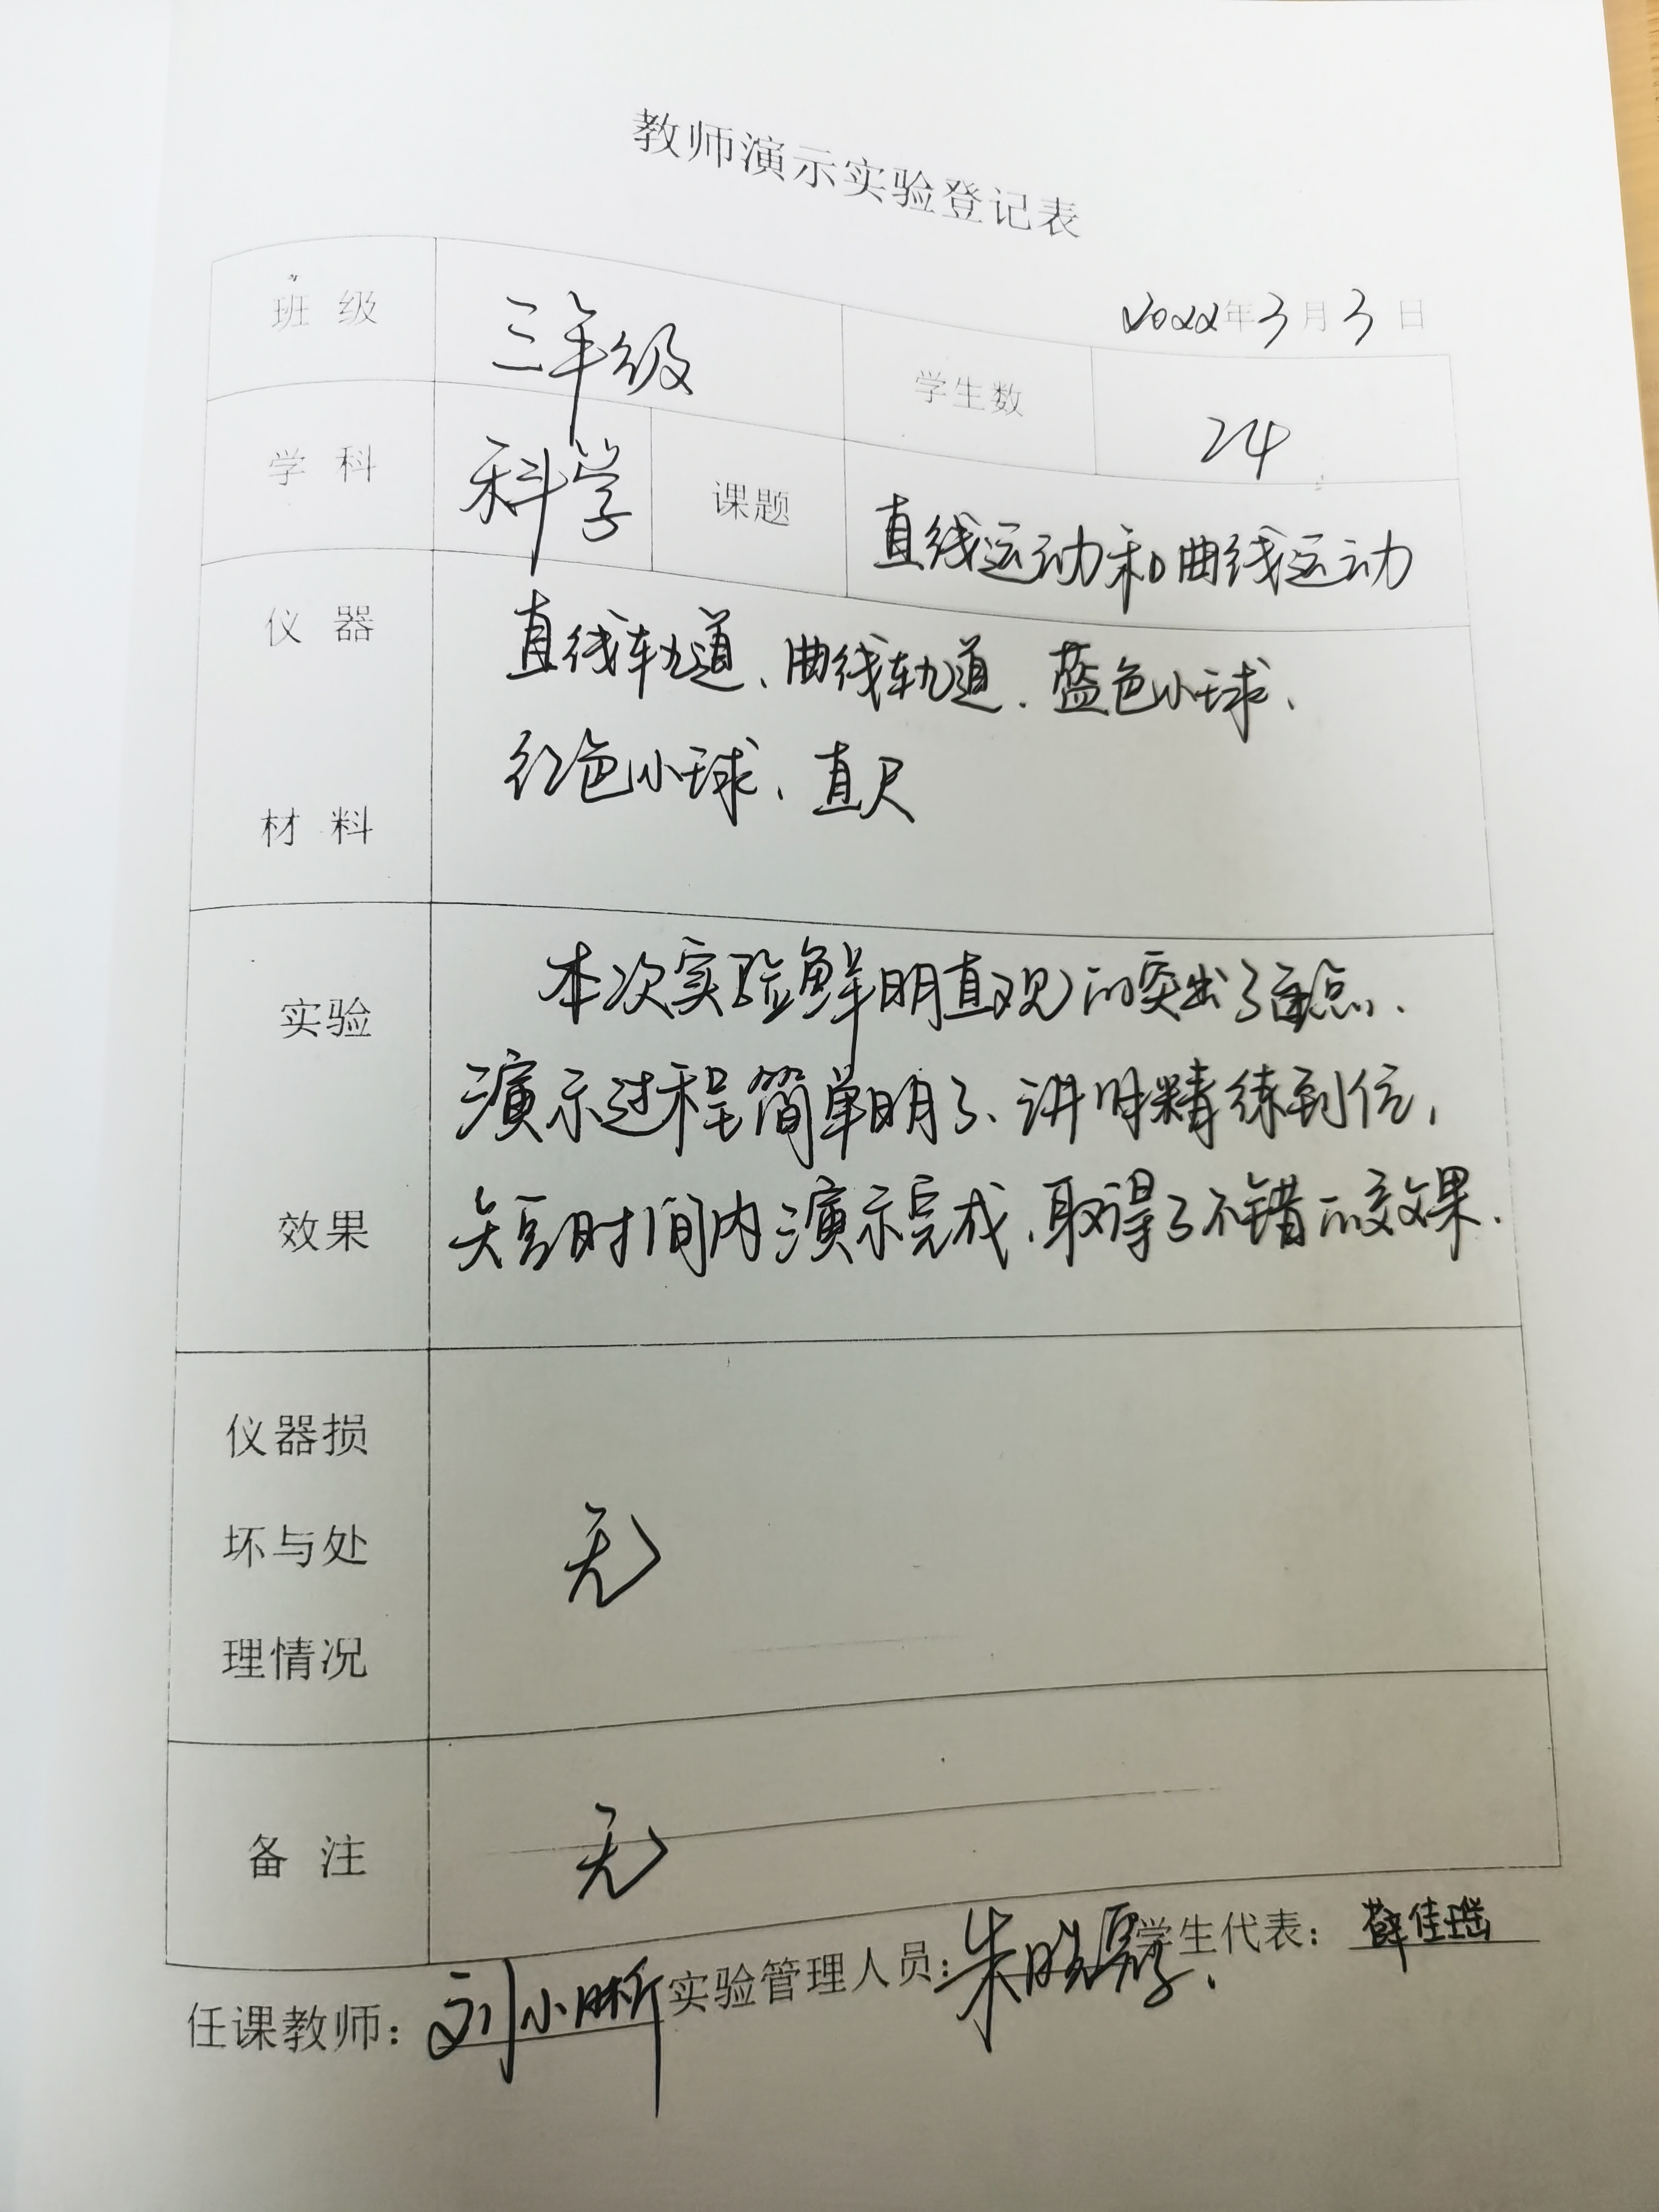 教师演示实验登记表
2022年3月3日
班 级 三年级 学生数 24
学 科 科学 课题 直线运动和曲线运动
仪 器 直线轨道、曲线轨道、蓝色小球、
红色小球、直尺
材 料
本次实验鲜明直观的突出了重点、
实验
演示过程简单明了、讲时精练到位,
效果 短时间内演示完成,取得了不错的效果.
仪器损
坏与处 无
理情况
备 注 无
任课教师: 刘小 实验管理人员: 朱晓 学生代表: 薛佳瑶